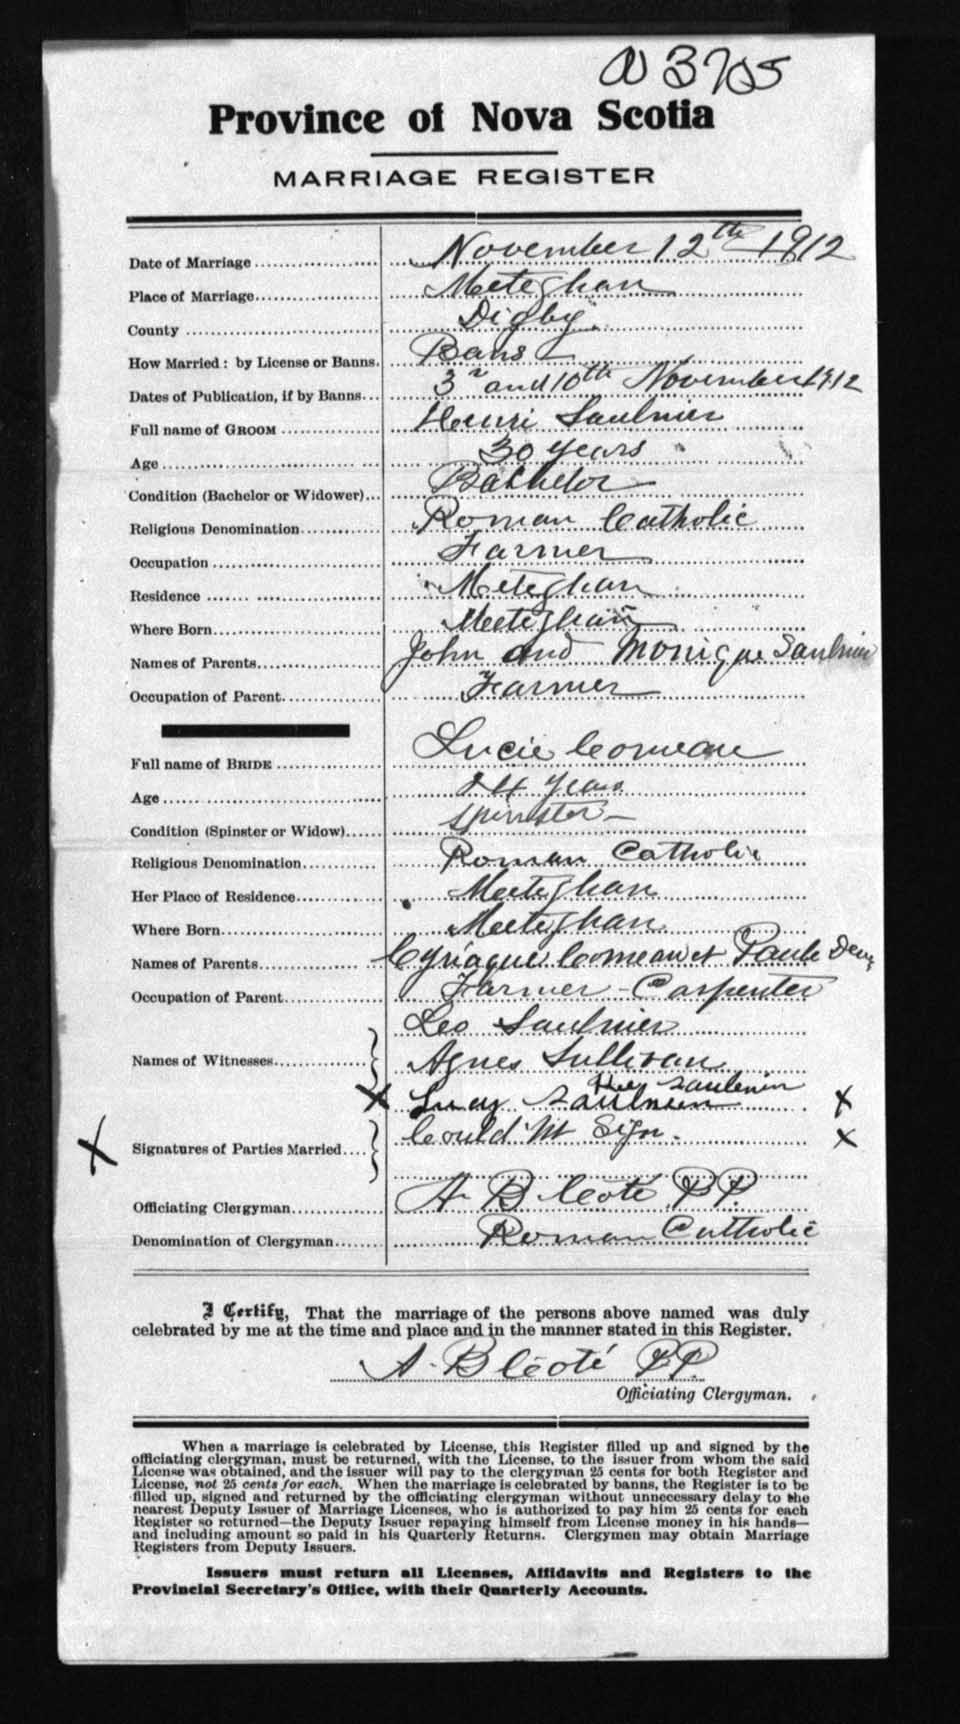 3705
Province of Nova Scotia
MARRIAGE REGISTER
Date of Marriage November 12th 1912
Place of Marriage Meteghan
County Digby
How Married: by License or Banns. Bans
Dates of Publication, if by Banns 3r and 10th November 1912
Full name of GROOM Henri Saulnier
Age 30 years
Condition (Bachelor or Widower) Bachelor
Religious Denomination Roman Catholic
Occupation Farmer
Residence Meteghan
Where Born Meteghan
Names of Parents John and Monique Saulnier
Occupation of Parent Farmer
Full name of BRIDE Lucie Comeau
Age 24 years
Condition (Spinster or Widow) Spinster
Religious Denomination Roman Catholic
Her Place of Residence Meteghan
Where Born Meteghan
Names of Parents Cyriaque Comeau et Paule
Occupation of Parent Farmer - Carpenter
Leo Saulnier
Names of Witnesses Agnes Sullivan
X Lucy Saulnier Saulnier X
X Signatures of Parties Married Could Nt Sign. X
Officiating Clergyman A B Côté P.P.
Denomination of Clergyman Roman Catholic
I Certify, That the marriage of the persons above named was duly
celebrated by me at the time and place and in the manner stated in this Register.
A. B Côté P.P.
Officiating Clergyman.
When a marriage is celebrated by License, this Register filled up and signed by the
officiating clergyman, must be returned, with the License, to the issuer from whom the said
License was obtained, and the issuer will pay to the clergyman 25 cents for both Register and
License, not 25 cents for each. When the marriage is celebrated by banns, the Register is to be
filled up, signed and returned by the officiating clergyman without unnecessary delay to the
nearest Deputy Issuer of Marriage Licenses, who is authorized to pay him 25 cents for each
Register so returned—the Deputy Issuer repaying himself from License money in his hands—
and including amount so paid in his Quarterly Returns. Clergymen may obtain Marriage
Registers from Deputy Issuers.
Issuers must return all Licenses, Affidavits and Registers to the
Provincial Secretary's Office, with their Quarterly Accounts.